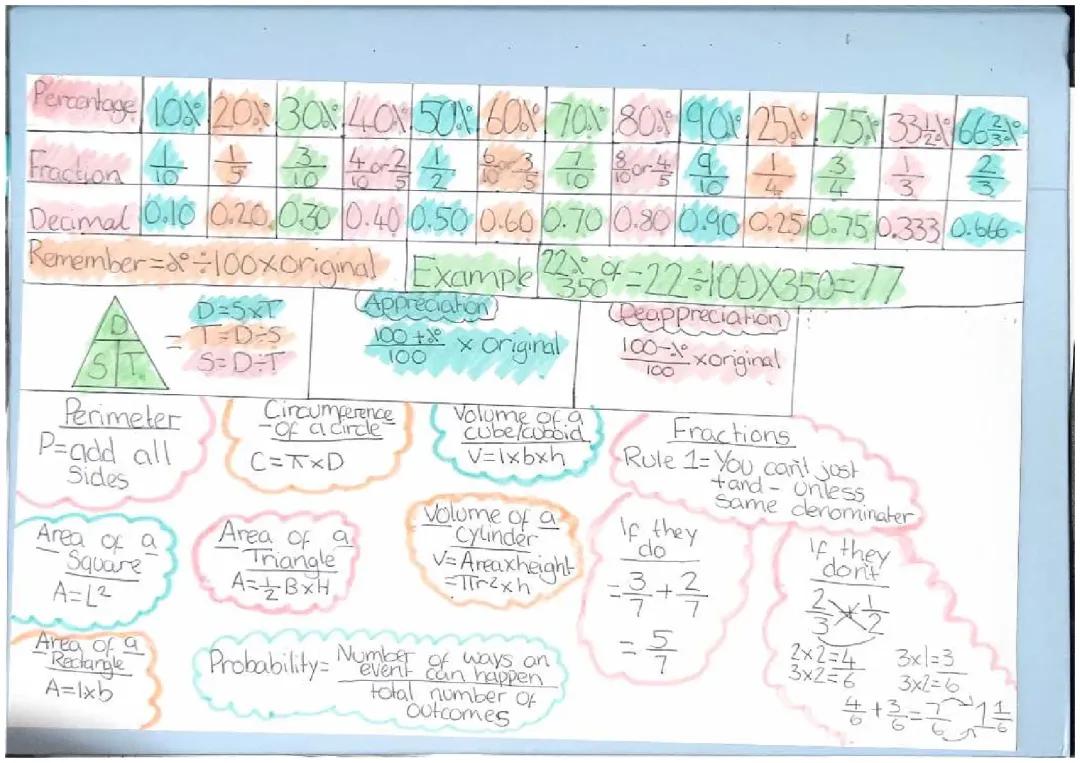 Percentage 10% 20% 30% 40% 50% 60% 70% 80% 90% 25% 75% 33⅓% 66⅔%
Fraction 1/10 1/5 3/10 4/10 or 2/5 1/2 6/10 or 3/5 7/10 8/10 or 4/5 9/10 1/4 3/4 1/3 2/3
Decimal 0.10 0.20 0.30 0.40 0.50 0.60 0.70 0.80 0.90 0.25 0.75 0.333 0.666
Remember = % ÷ 100 x original
Example 22% of 350 = 22 ÷ 100 X 350 = 77
D
S T
=
D = S x T
T = D ÷ S
S = D ÷ T
Appreciation
100 + % / 100 x original
Deappreciation
100 - % / 100 x original
Perimeter
P = add all
sides
Circumference
of a circle
C = π x D
Volume of a
cube/cuboid
V = l x b x h
Fractions
Rule 1 = You can't just
+ and - unless
same denominater
Area of a
Square
A = L²
Area of a
Triangle
A = ½ B x H
Volume of a
Cylinder
V = Area x height
= πr² x h
If they
do
= 3/7 + 2/7
= 5/7
If they
don't
2/3 1/2
2 x 2 = 4
3 x 2 = 6
3 x 1 = 3
3 x 2 = 6
4/6 + 3/6 = 7/6 1 1/6
Area of a
Rectangle
A = l x b
Probability = Number of ways an
event can happen
total number of
outcomes